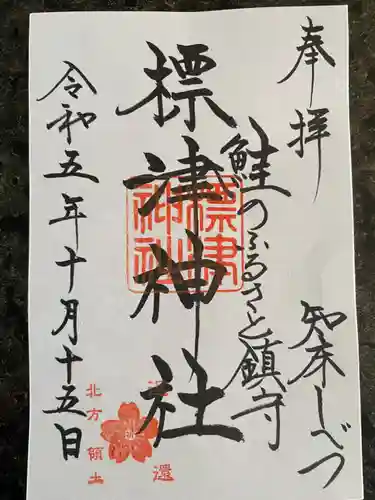 奉拝
知床しべつ
鮭のふるさと鎮守
標津神社
標津神社
還
北方領土
令和五年十月十五日